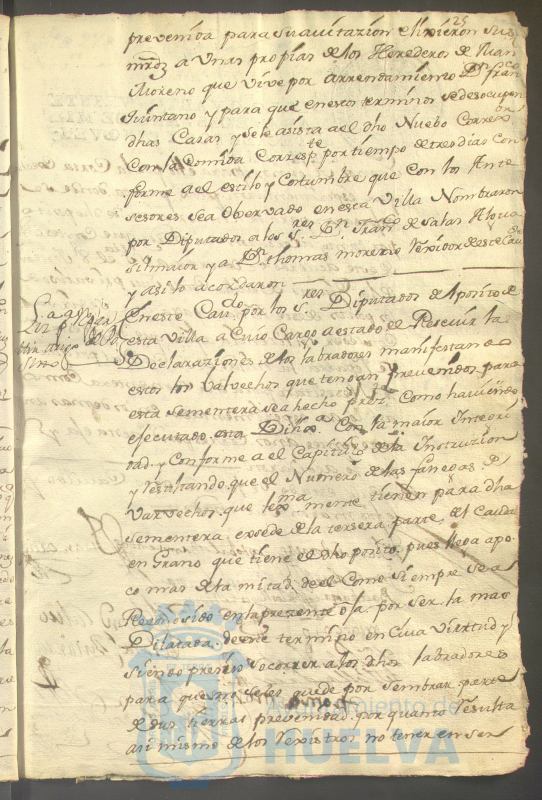 25
prevenida para su avitazion elixieron sus
mrds a Unas propias de los Herederos de Juan
Moreno que vive por arrendamiento Dn Franco
Quintano y para que en este termino se desocupen
dhas Casas y se le asista a el dho Nuebo Correxor
Con la Comida Correspte por tiempo de tres dias con
forme a el estilo y Costumbre que con los Ante
sesores sea Obervado en esta Villa Nombraron
por Diputados a los Sres Dn Franco de Salas Alguasil
maior y a Dn thomas moreno rexidor de este Cavdo
y asi lo acordaron
En este Cavdo por los Sres Diputados de el posito de
esta villa a Cuio Cargo a estado el Rescivir las
Declaraziones de los labradores manifestando
estos los Varvechos que tengan prevenidos para
esta sementera sea hecho preste Como haviendo
ejecutado esta Diliga Con la maior Integri
dad y Conforme a el Capitulo de la Instruzion
y resultando que el Numero de las fanegas de
Varvechos que lexmamente tienen para dha
Sementera exsede de la tersera parte de el Caudal
en Grano que tiene el dho posito pues llega a po
co mas de la mitad de el Como siempre sea
Reconosido en la presente
Dilatada de este termino en Cuia Virtud y
siendo presiso socorrer a los dhos labradores
para que no se les quede por sembrar parte
de sus tierras prevenidas por quanto resulta
asi mismo de los rexistros no tener en ser
Ayuntamiento de
HUELVA